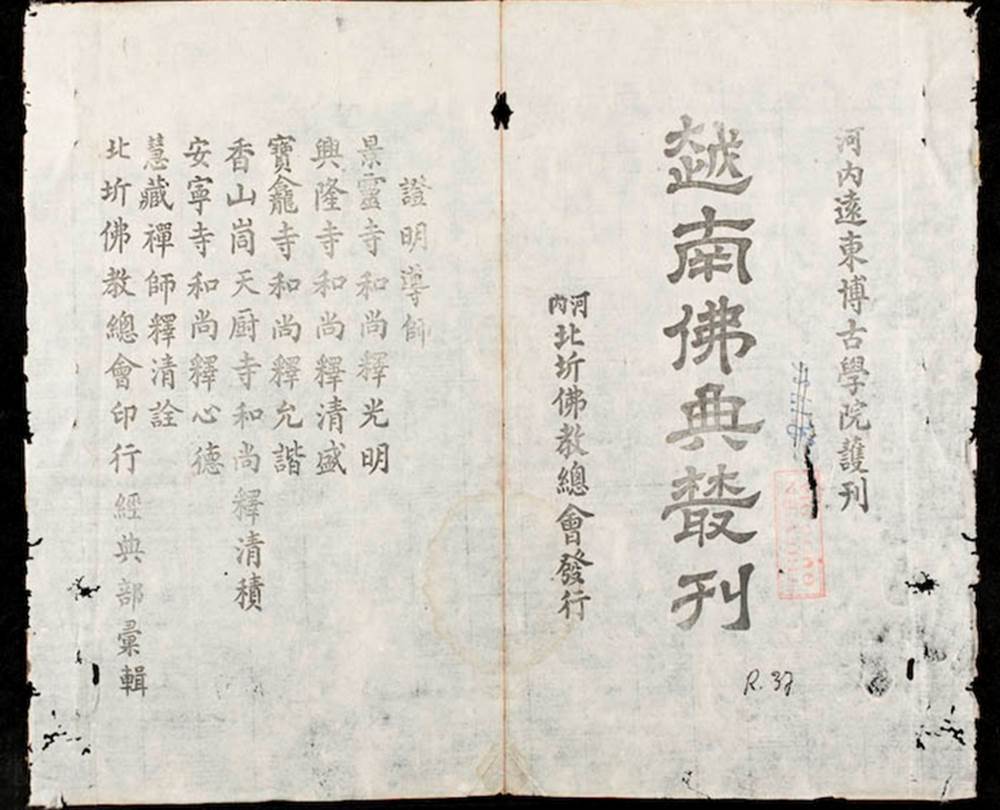 河内遠東博古學院護刊
越南佛典叢刊
河内北圻佛教總會發行
R. 37
證明導師
景靈寺和尚釋光明
興隆寺和尚釋清盛
寶龕寺和尚釋允諧
香山峝天厨寺和尚釋清積
安寧寺和尚釋心德
慧藏禪師釋清詮
北圻佛教總會印行經典部彙輯